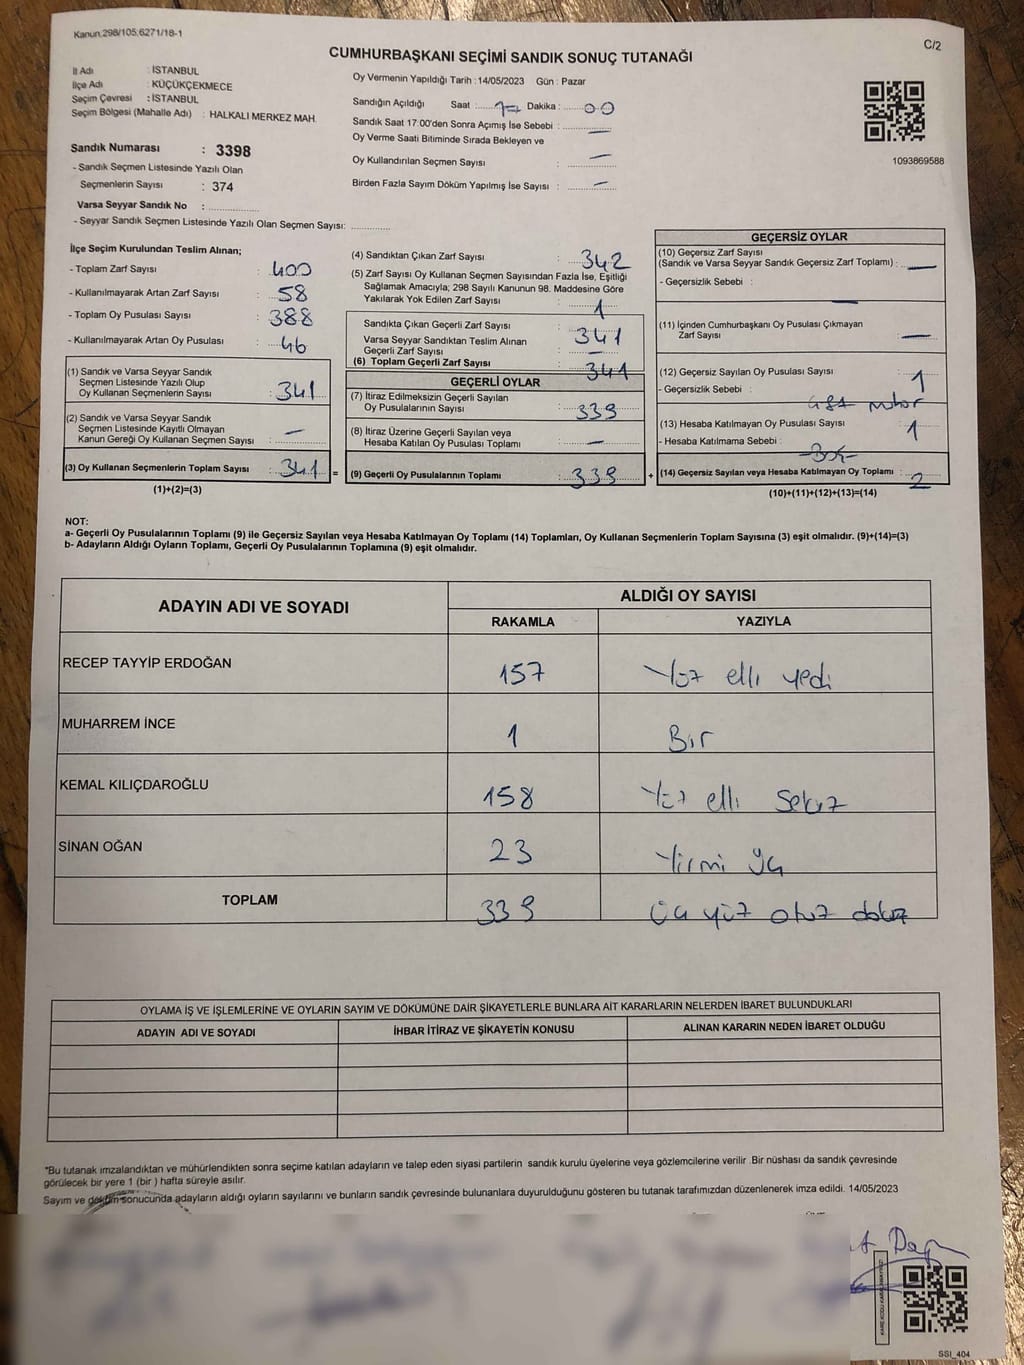 Kanun:298/105;6271/18-1
C/2
CUMHURBAŞKANI SEÇİMİ SANDIK SONUÇ TUTANAĞI
İl Adı : İSTANBUL
İlçe Adı : KÜÇÜKÇEKMECE
Seçim Çevresi : İSTANBUL
Seçim Bölgesi (Mahalle Adı) : HALKALI MERKEZ MAH.
Sandık Numarası : 3398
- Sandık Seçmen Listesinde Yazılı Olan
Seçmenlerin Sayısı : 374
Varsa Seyyar Sandık No : ..............
- Seyyar Sandık Seçmen Listesinde Yazılı Olan Seçmen Sayısı: ............
Oy Vermenin Yapıldığı Tarih : 14/05/2023 Gün : Pazar
Sandığın Açıldığı Saat : 17 Dakika : 00
Sandık Saat 17:00'den Sonra Açımış İse Sebebi : —
Oy Verme Saati Bitiminde Sırada Bekleyen ve
Oy Kullandırılan Seçmen Sayısı : —
Birden Fazla Sayım Döküm Yapılmış İse Sayısı : —
1093869588
İlçe Seçim Kurulundan Teslim Alınan;
- Toplam Zarf Sayısı : 400
- Kullanılmayarak Artan Zarf Sayısı : 58
- Toplam Oy Pusulası Sayısı : 388
- Kullanılmayarak Artan Oy Pusulası : 46
(1) Sandık ve Varsa Seyyar Sandık
Seçmen Listesinde Yazılı Olup
Oy Kullanan Seçmenlerin Sayısı : 341
(2) Sandık ve Varsa Seyyar Sandık
Seçmen Listesinde Kayıtlı Olmayan
Kanun Gereği Oy Kullanan Seçmen Sayısı : —
(3) Oy Kullanan Seçmenlerin Toplam Sayısı : 341 =
(1)+(2)=(3)
(4) Sandıktan Çıkan Zarf Sayısı : 342
(5) Zarf Sayısı Oy Kullanan Seçmen Sayısından Fazla İse, Eşitliği
Sağlamak Amacıyla; 298 Sayılı Kanunun 98. Maddesine Göre
Yakılarak Yok Edilen Zarf Sayısı : 1
Sandıkta Çıkan Geçerli Zarf Sayısı : 341
Varsa Seyyar Sandıktan Teslim Alınan
Geçerli Zarf Sayısı : —
(6) Toplam Geçerli Zarf Sayısı : 341
GEÇERLİ OYLAR
(7) İtiraz Edilmeksizin Geçerli Sayılan
Oy Pusulalarının Sayısı : 339
(8) İtiraz Üzerine Geçerli Sayılan veya
Hesaba Katılan Oy Pusulası Toplamı : —
(9) Geçerli Oy Pusulalarının Toplamı : 339 +
GEÇERSİZ OYLAR
(10) Geçersiz Zarf Sayısı
(Sandık ve Varsa Seyyar Sandık Geçersiz Zarf Toplamı) : —
- Geçersizlik Sebebi : —
(11) İçinden Cumhurbaşkanı Oy Pusulası Çıkmayan
Zarf Sayısı : —
(12) Geçersiz Sayılan Oy Pusulası Sayısı : 1
- Geçersizlik Sebebi :
(13) Hesaba Katılmayan Oy Pusulası Sayısı : 1
- Hesaba Katılmama Sebebi :
(14) Geçersiz Sayılan veya Hesaba Katılmayan Oy Toplamı : 2
(10)+(11)+(12)+(13)=(14)
NOT:
a- Geçerli Oy Pusulalarının Toplamı (9) ile Geçersiz Sayılan veya Hesaba Katılmayan Oy Toplamı (14) Toplamları, Oy Kullanan Seçmenlerin Toplam Sayısına (3) eşit olmalıdır. (9)+(14)=(3)
b- Adayların Aldığı Oyların Toplamı, Geçerli Oy Pusulalarının Toplamına (9) eşit olmalıdır.
ADAYIN ADI VE SOYADI
ALDIĞI OY SAYISI
RAKAMLA YAZIYLA
RECEP TAYYİP ERDOĞAN 157 Yüz elli yedi
MUHARREM İNCE 1 Bir
KEMAL KILIÇDAROĞLU 158 Yüz elli sekiz
SİNAN OĞAN 23 Yirmi üç
TOPLAM 339 üç yüz otuz dokuz
OYLAMA İŞ VE İŞLEMLERİNE VE OYLARIN SAYIM VE DÖKÜMÜNE DAİR ŞİKAYETLERLE BUNLARA AİT KARARLARIN NELERDEN İBARET BULUNDUKLARI
ADAYIN ADI VE SOYADI İHBAR İTİRAZ VE ŞİKAYETİN KONUSU ALINAN KARARIN NEDEN İBARET OLDUĞU
*Bu tutanak imzalandıktan ve mühürlendikten sonra seçime katılan adayların ve talep eden siyasi partilerin sandık kurulu üyelerine veya gözlemcilerine verilir .Bir nüshası da sandık çevresinde
görülecek bir yere 1 (bir ) hafta süreyle asılır.
Sayım ve döküm sonucunda adayların aldığı oyların sayılarını ve bunların sandık çevresinde bulunanlara duyurulduğunu gösteren bu tutanak tarafımızdan düzenlenerek imza edildi. 14/05/2023
SSI_404